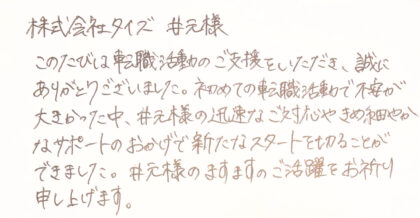 株式会社タイズ 井元様
このたびは転職活動のご支援をいただき、誠に
ありがとうございました。初めての転職活動で不安が
大きかった中、井元様の迅速なご対応やきめ細やか
なサポートのおかげで新たなスタートを切ることが
できました。井元様のますますのご活躍をお祈り
申し上げます。